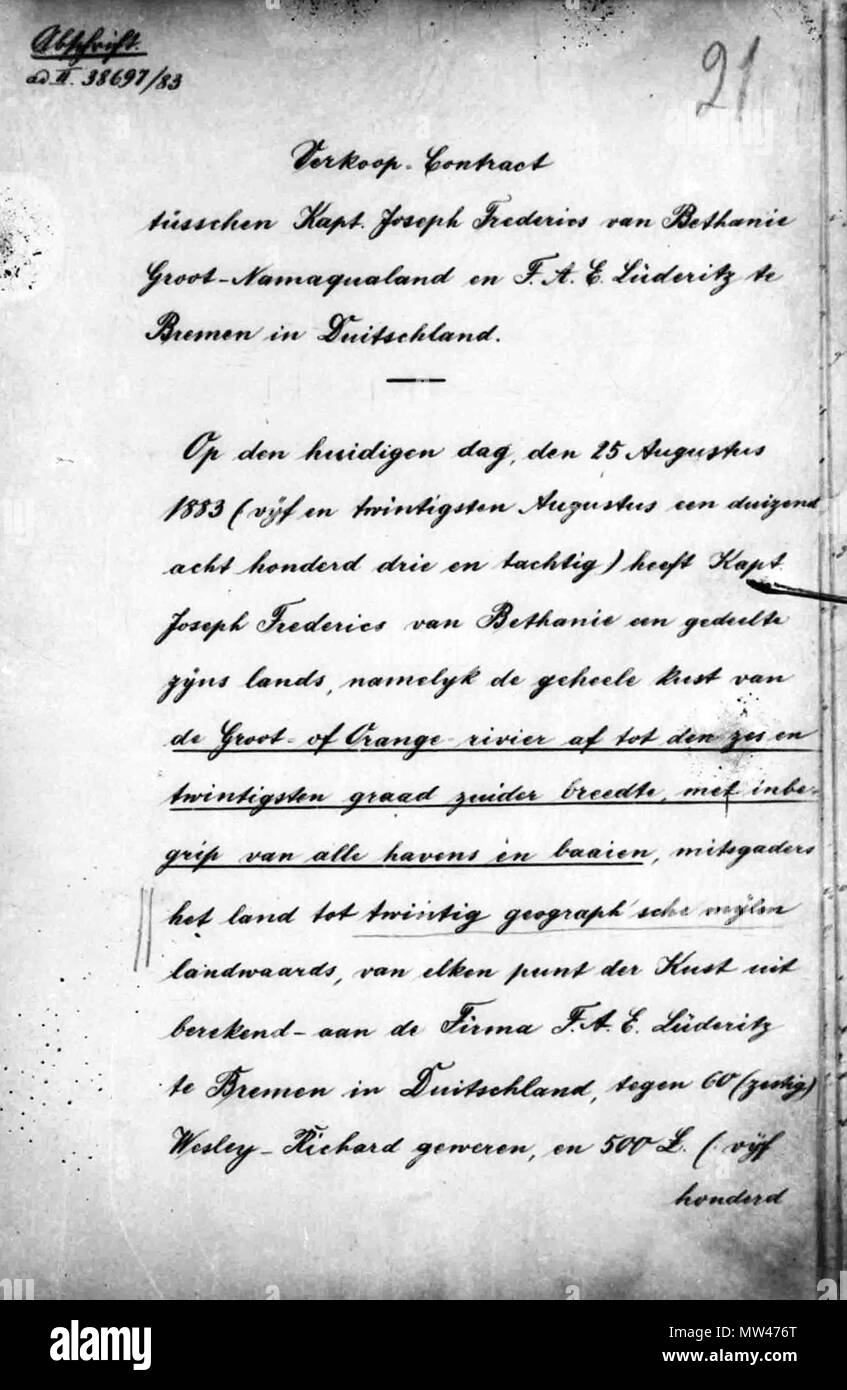 Abschrift.
ad II. 38697/83
21
Verkoop-Contract
tüsschen Kapt. Joseph Frederics van Bethanie
Groot-Namaqualand en F. A. E. Lüderitz te
Bremen in Duitschland.
Op den huidigen dag, den 25 Augustus
1883 (vÿf en twintigsten Augustus een duizend
acht honderd drie en tachtig) heeft Kapt.
Joseph Frederics van Bethanie een gedeelte
zÿns lands, namelÿk de geheele kust van
de Groot- of Orange-rivier af tot den zes en
twintigsten graad zuider breedte, met inbe-
grip van alle havens en baaien, mitsgaders
het land tot twintig geograph'sche mÿlen
landwaards, van elken punt der Kust uit
berekend - aan de Firma F. A. E. Lüderitz
te Bremen in Duitschland, tegen 60 (zestig)
Wesley-Richard geweren, en 500 £. (: vÿf
honderd
alamy
a
alamy stock photo
MW476T
www.alamy.com